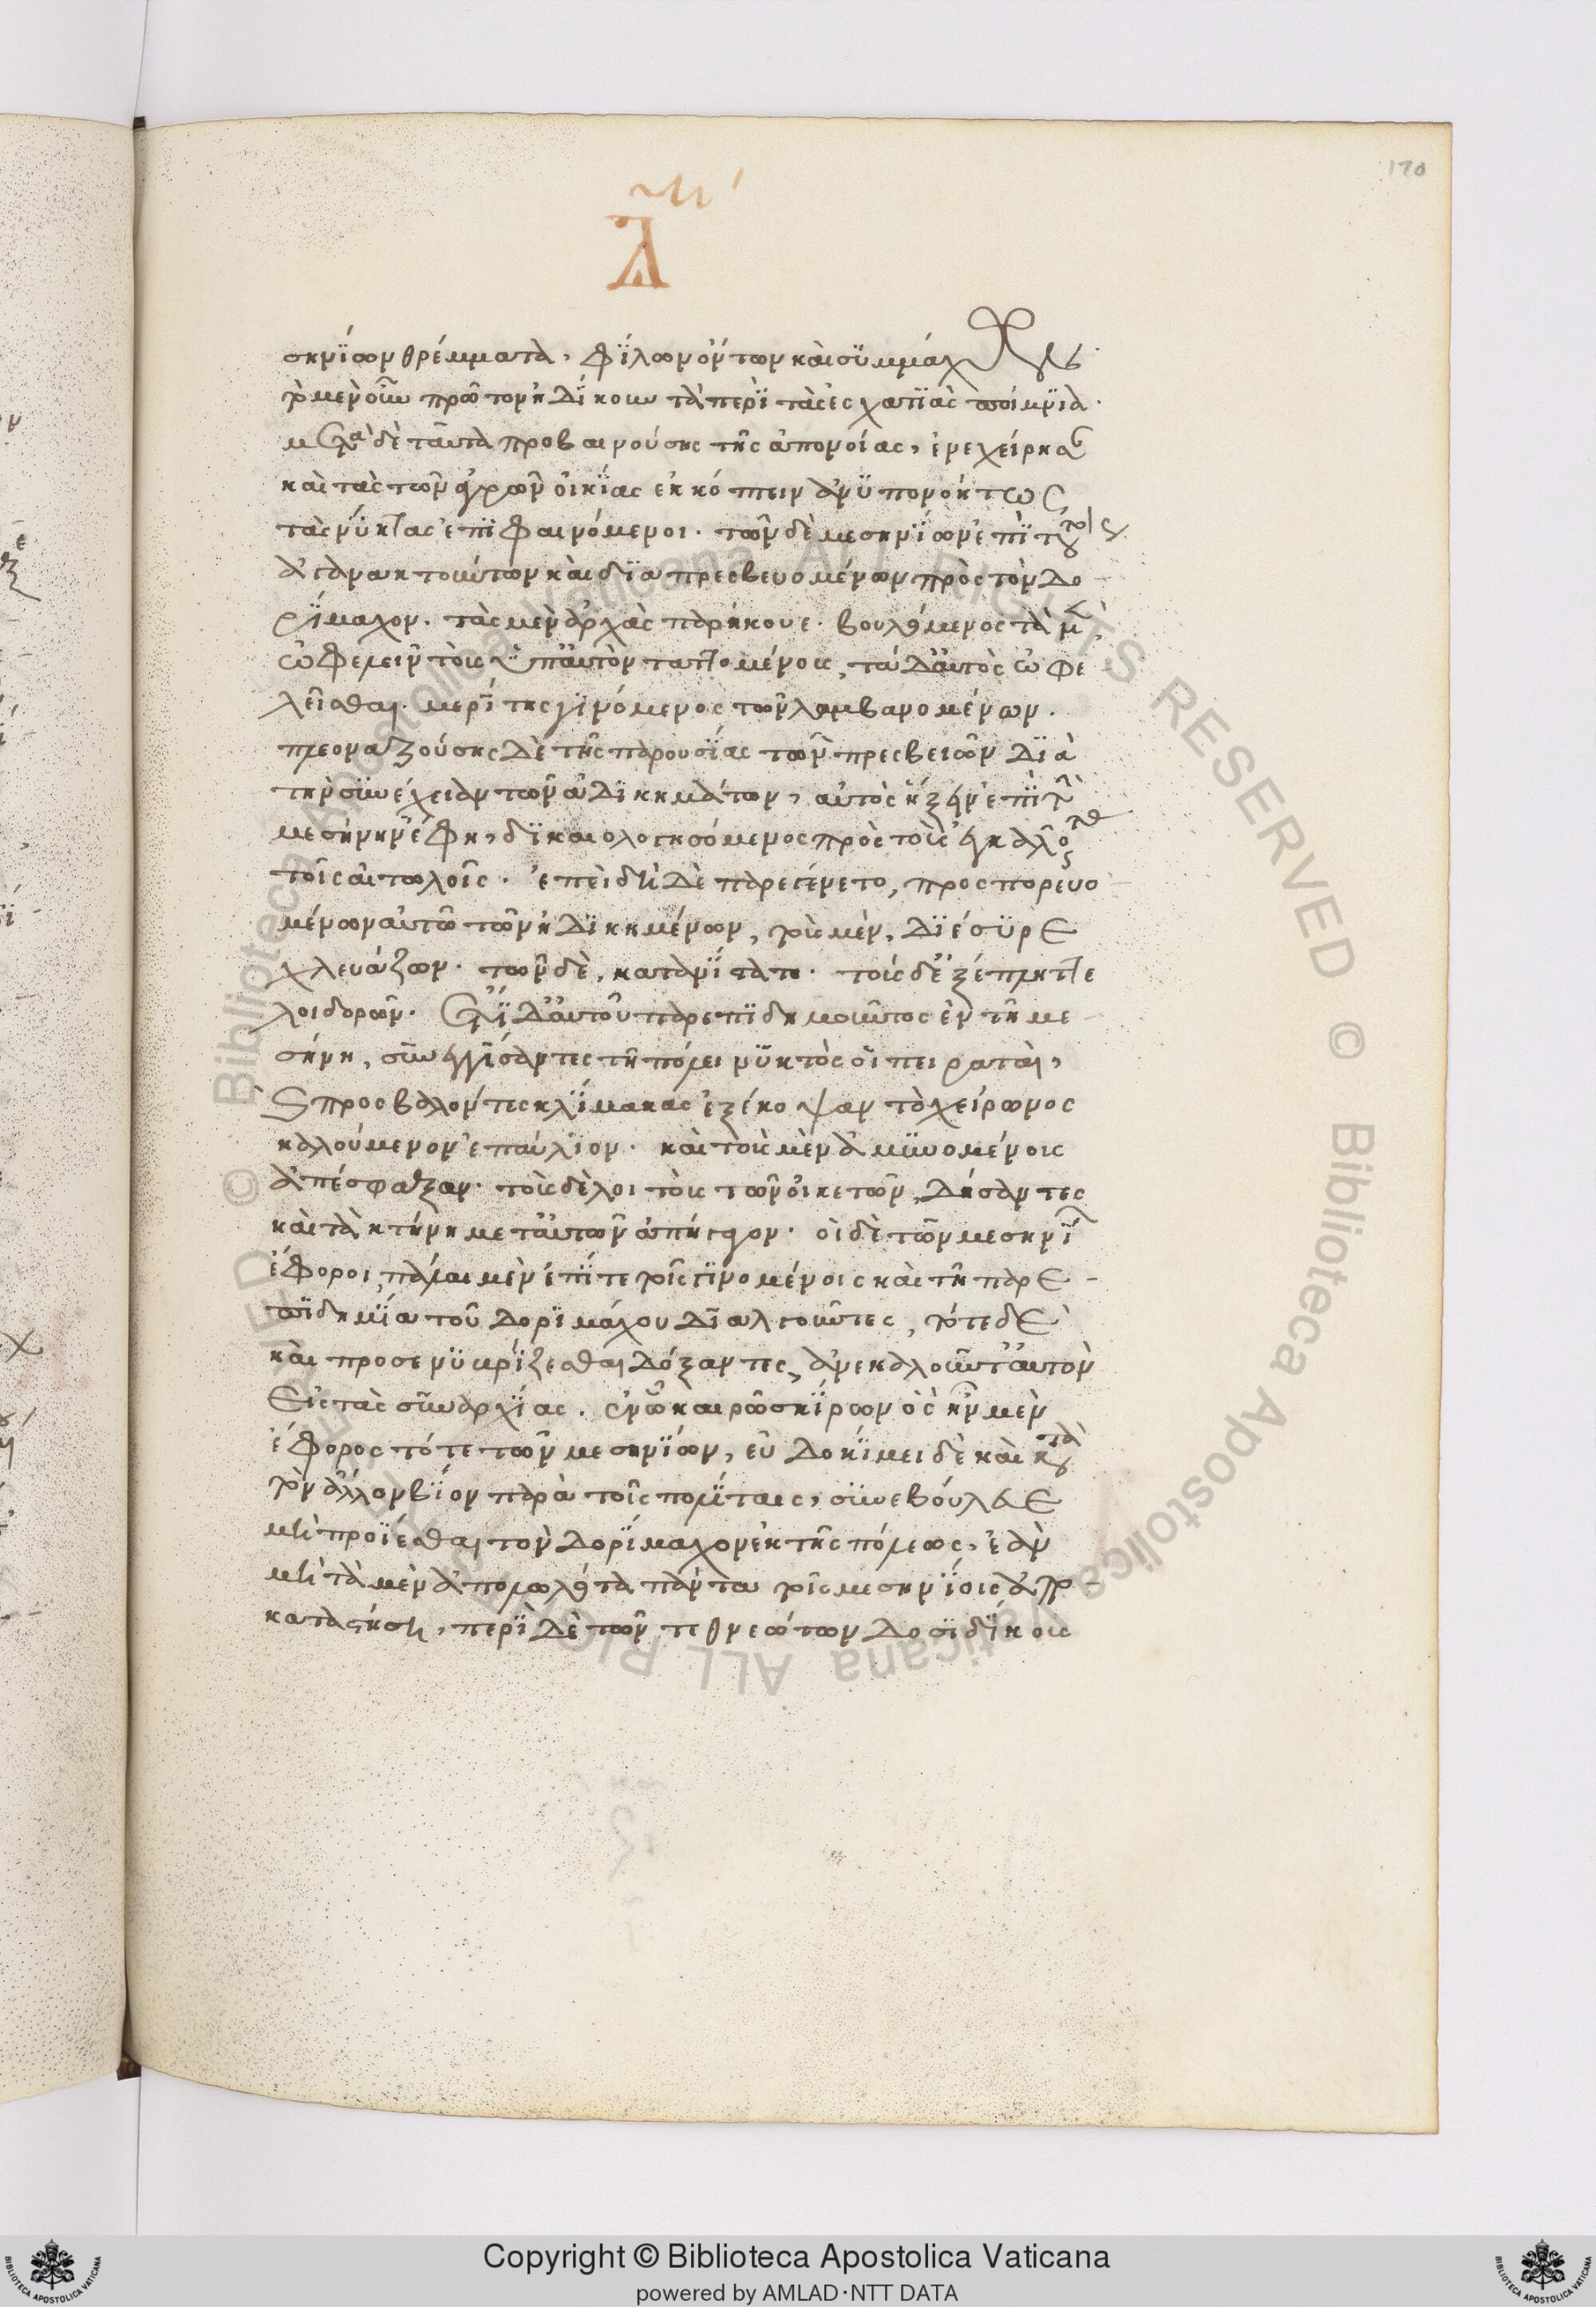 170
Δ
σκηνίων θρέμματα, φίλων ὄντων καὶ συμμάχων
τὸ μὲν οὖν πρῶτον ἠδίκουν τὰ περὶ τὰς ἐσχατιὰς ποίμνια.
μετὰ δὲ ταῦτα προβαινούσης τῆς ἀπονοίας, ἐνεχείρησαν
καὶ τὰς τῶν ἀγρῶν οἰκίας ἐκκόπτειν ἀνυπονοήτως
τὰς νύκτας ἐπιφαινόμενοι. τῶν δὲ μεσηνίων ἐπὶ τούτοις
ἀγανακτούντων καὶ διαπρεσβευομένων πρὸς τὸν Δο
ρίμαχον. τὰς μὲν ἀρχὰς παρήκουε. βουλόμενος τὰ μὲν
ὠφελεῖν τοὺς ὑπ' αὐτὸν ταττομένους, τὰ δ' αὐτὸς ὠφε
λεῖσθαι. μερίτης γινόμενος τῶν λαμβανομένων.
πλεοναζούσης δὲ τῆς παρουσίας τῶν πρεσβειῶν διὰ
τὴν συνέχειαν τῶν ἀδικημάτων, αὐτὸς ἥξειν ἐπὶ τὴν
μεσήνην ἔφη, δικαιολογησόμενος πρὸς τοὺς ἐγκαλοῦντας
τοῖς αἰτωλοῖς. ἐπειδὴ δὲ παρεγένετο, προσπορευο
μένων αὐτῶ τῶν ἠδικημένων, τοὺς μὲν, διέσυρε
χλευάζων. τῶν δὲ, κατανίστατο. τοὺς δ' ἐξέπληττε
λοιδορῶν. ἔτι δ' αὐτοῦ παρεπιδημοῦντος ἐν τῆ με
σήνη, συνεγγίσαντες τῆ πόλει νυκτὸς οἱ πειραταὶ,
καὶ προσβαλόντες κλίμακας ἐξέκοψαν τὸ χείρωνος
καλούμενον ἐπαύλιον. καὶ τοὺς μὲν ἀμυνομένους
ἀπέσφαξαν. τοὺς δὲ λοιποὺς τῶν οἰκετῶν, δήσαντες
καὶ τὰ κτήνη μετ' αὐτῶν ἀπήγαγον. οἱ δὲ τῶν μεσηνίων
ἔφοροι πάλαι μὲν ἐπί τε τοῖς γινομένοις καὶ τῆ παρε-
πιδημία τοῦ Δοριμάχου διαλγοῦντες, τότε δὲ
καὶ προσενυβρίζεσθαι δόξαντες, ἀνεκαλοῦντ' αὐτὸν
εἰς τὰς συναρχίας. ἐν ὧ καιρῶ σκίρων ὃς ἦν μὲν
ἔφορος τότε τῶν μεσηνίων, εὐδοκίμει δὲ καὶ κατὰ
τὸν ἄλλον βίον παρὰ τοῖς πολίταις, συνεβούλευε
μὴ προΐεσθαι τὸν Δορίμαχον ἐκ τῆς πόλεως, ἐὰν
μὴ τὰ μὲν ἀπολωλότα πάντα τοῖς μεσηνίοις ἀπο-
καταστήση, περὶ δὲ τῶν τεθνεώτων δοσιδίκους
Copyright © Biblioteca Apostolica Vaticana
powered by AMLAD·NTT DATA